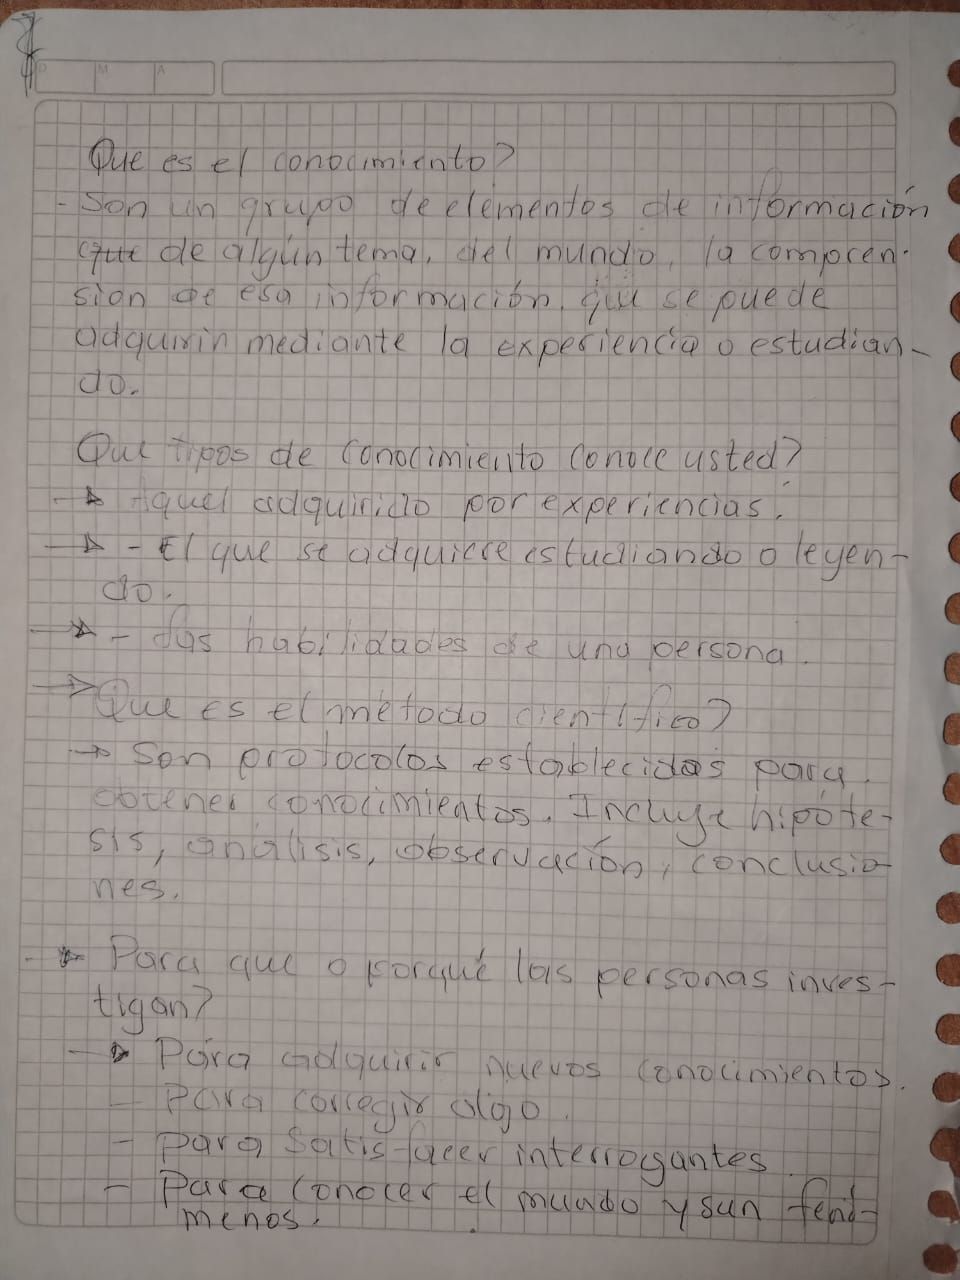 D M A
Que es el conocimiento?
- Son un grupo de elementos de información
de algún tema, del mundo, la compren-
sion de esa información, que se puede
adquirir mediante la experiencia o estudian-
do.
Que tipos de conocimiento conoce usted?
→ Aquel adquirido por experiencias.
→ - El que se adquiere estudiando o leyen-
do.
→ - Las habilidades de una persona.
→ Que es el método científico?
→ Son protocolos establecidos para
obtener conocimientos. Incluye hipóte-
sis, análisis, observación, conclusio-
nes.
→ Para que o porqué las personas inves-
tigan?
→ Para adquirir nuevos conocimientos.
- Para corregir algo.
- Para satisfacer interrogantes
- Para conocer el mundo y sun fenó-
menos.